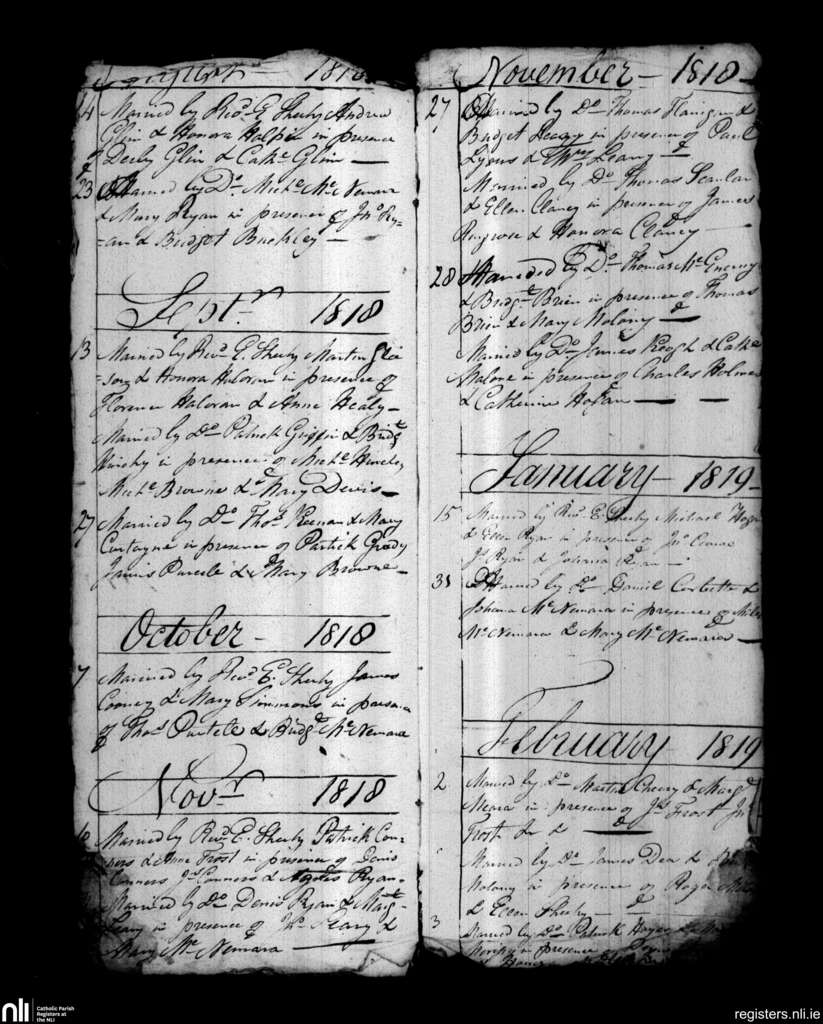 August 1818
14 Married by Revd. E Sheehy Andrew
Glin & Honora Halpin in presence
of Derby Glin & Cathe Glin —
23 Married by Do. Michl. McNemara
& Mary Ryan in presence of Jno. Ry-
-an & Bridget Buckley —
Septr. 1818
13 Married by Revd. E. Sheehy Martin Glee
-son & Honora Haloran in presence of
Florence Haloran & Anne Healy —
Married by Do. Patrick Griffin & Bridgt
in presence of Michl.
Michl. Browne & Mary Davis —
27 Married by Do. Thos. Keenan & Mary
Curtayne in presence of Partick Grady
James Purcele & Mary Browne —
October — 1818
7 Married by Revd. E. Sheehy James
Cooney & Mary Simmons in presence
of Thos. Purtele & Bridgt McNemara
Novr. 1818
10 Married by Revd. E. Sheehy Patrick Con-
ners & Anne Frost in presence of Denis
Conners Jno. Conners & Agnes Ryan.
Married by Do. Denis Ryan & Margt
Leary in presence of Jno. Leary &
Mary McNemara —
November — 1818 —
27 Married by Do. Thomas Flanigan &
Bridget Leary in presence of Paul
Lyons & Thos. Leary —
Married by Do. Thomas Scanlan
& Ellen Clancy in presence of James
& Honora Clancy —
28 Married by Do. Thomas McEnerny
& Bridgt Brien in presence of Thomas
Brien & Mary Molony —
Married by Do. James Keogh & Cathe
Malone in presence of Charles Holmes
& Catherine Hogan —
January — 1819 —
15 Married by Revd. E. Sheehy Michael Hogan
& Ellen Ryan in presence of Jno.
Jno. Ryan & Johanna Ryan —
31 Married by Do. Daniel Corbett &
Johana McNemara in presence of Miles
McNemara & Mary McNemara —
February — 1819
2 Married by Do. Martin & Margt
Meara in presence of Jno. Frost Jno
Frost Jr & —
Married by Do. James Dea &
Molony in presence of Roger
& Ellen Sheehy —
3 Married by Do. Patrick Hayes &
in presence of
nli Catholic Parish
Registers at
the NLI
registers.nli.ie